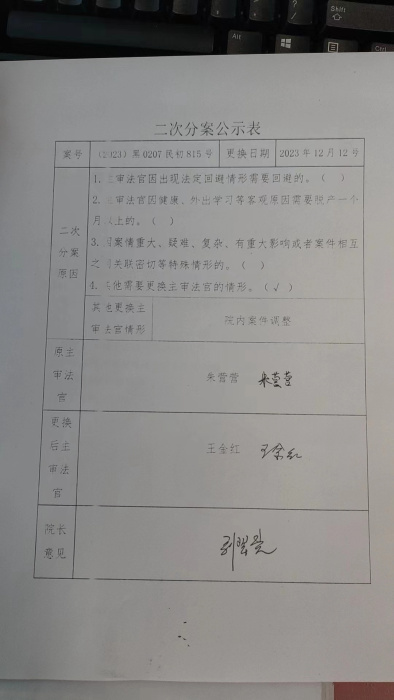 Alt
Shift
Ctrl
二次分案公示表
案号 (2023)冀0207民初815号 更换日期 2023年12月12号
二次分案原因
1.主审法官因出现法定回避情形需要回避的。( )
2.主审法官因健康、外出学习等客观原因需要脱产一个
月以上的。( )
3.因案情重大、疑难、复杂、有重大影响或者案件相互
之间关联密切等特殊情形的。( )
4.其他需要更换主审法官的情形。(√)
其他更换主
审法官情形 院内案件调整
原主
审法
官 朱营营 朱营营
更换
后主
审法
官 王金红 王金红
院长
意见